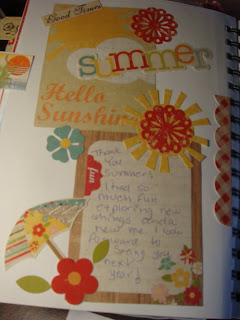 Good Times
summer
Hello
Sunshine
fun
Thank
You
Summer!
I had so
much fun
exploring new
things and a
new me. I look
forward to
seeing you
next
year!